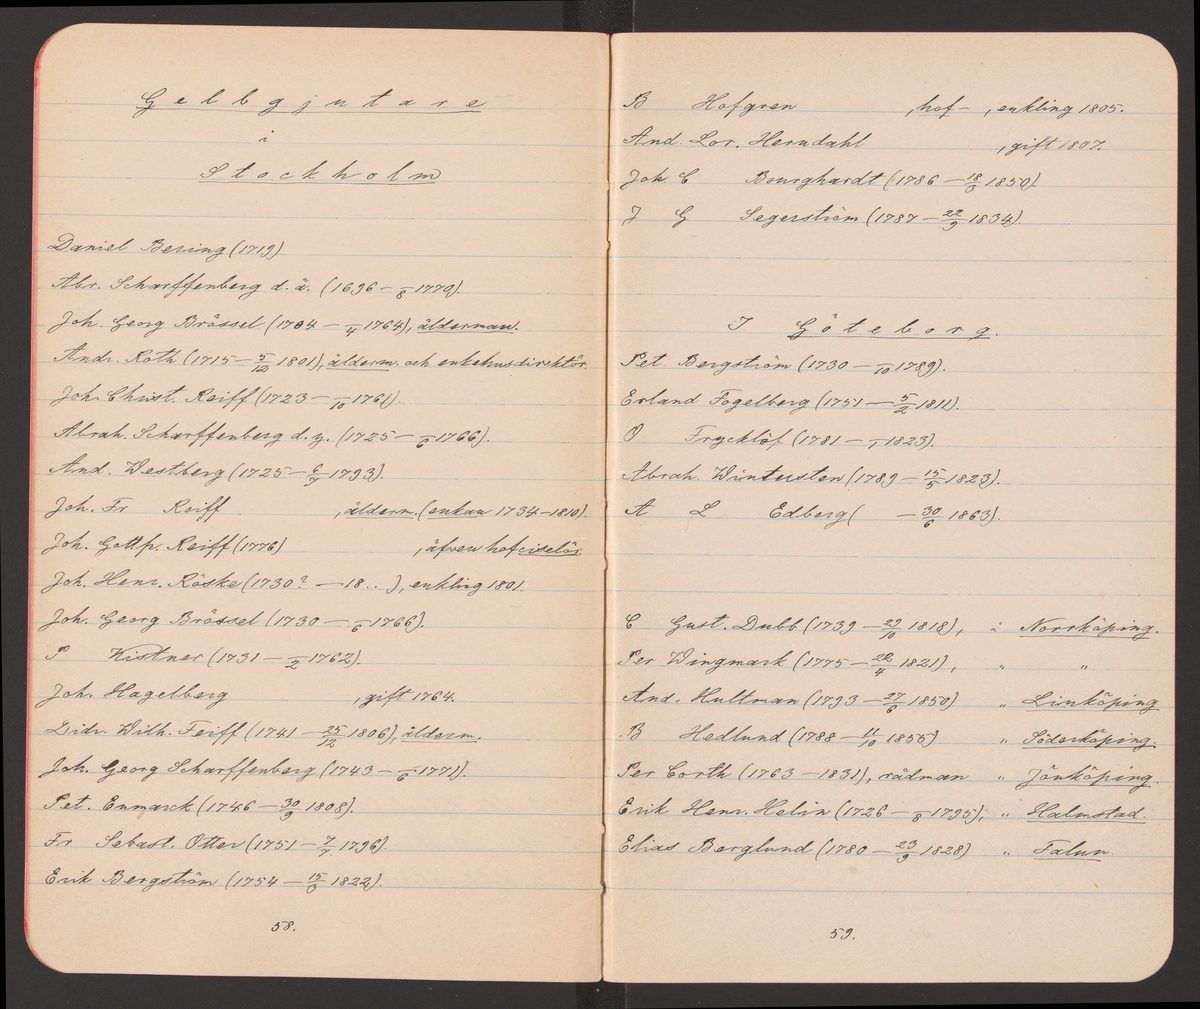 Gelbgjutare
i
Stockholm
Daniel Bering (1719)
Abr. Scharffenberg d. ä. (1696 – –/8 1779).
Joh. Georg Brössel (1704 – –/4 1764), ålderman.
Andr. Roth (1715 – 5/12 1801), ålderm. och enkehusdirektör.
Joh. Christ. Reiff (1723 – –/10 1761).
Abrah. Scharffenberg d. y. (1725 – –/6 1766).
And. Westberg (1725 – 6/7 1793).
Joh. Fr Reiff , ålderm. (enkan 1734–1810).
Joh. Gottfr. Reiff (1776) , äfven hofciselör.
Joh. Henr. Röske (1730? – 18..), enkling 1801.
Joh. Georg Brössel (1730 – –/6 1766).
P Kistner (1731 – –/2 1762).
Joh. Hagelberg , gift 1764.
Didr. Wilh. Feiff (1741 – 25/12 1806), ålderm.
Joh. Georg Scharffenberg (1743 – –/6 1771).
Pet. Enmarck (1746 – 30/9 1808).
Fr Sebast. Otter (1751 – 7/7 1796).
Erik Bergström (1754 – 15/8 1822).
58.
B Hofgren , hof– , enkling 1805.
And. Lor. Herndahl , gift 1807.
Joh. C Bourghardt (1786 – 18/8 1850).
J G Segerström (1787 – 22/9 1834).
I Göteborg.
Pet. Bergström (1730 – –/10 1789).
Erland Fogelberg (1751 – 5/2 1811).
O Frycklöf (1781 – –/1 1823).
Abrah. Wintersten (1789 – 15/5 1823).
A L Edberg ( – 30/6 1863).
C Gust. Dubb (1739 – 29/10 1818), i Norrköping.
Per Wingmark (1775 – 22/4 1821), " "
And. Hultman (1793 – 27/6 1850) " Linköping.
B Hedlund (1788 – 11/10 1855) " Söderköping.
Per Corth (1763 – 1831), rådman " Jönköping.
Erik Henr. Helin (1726 – –/8 1795), " Halmstad.
Elias Berglund (1780 – 23/9 1828) " Falun.
59.